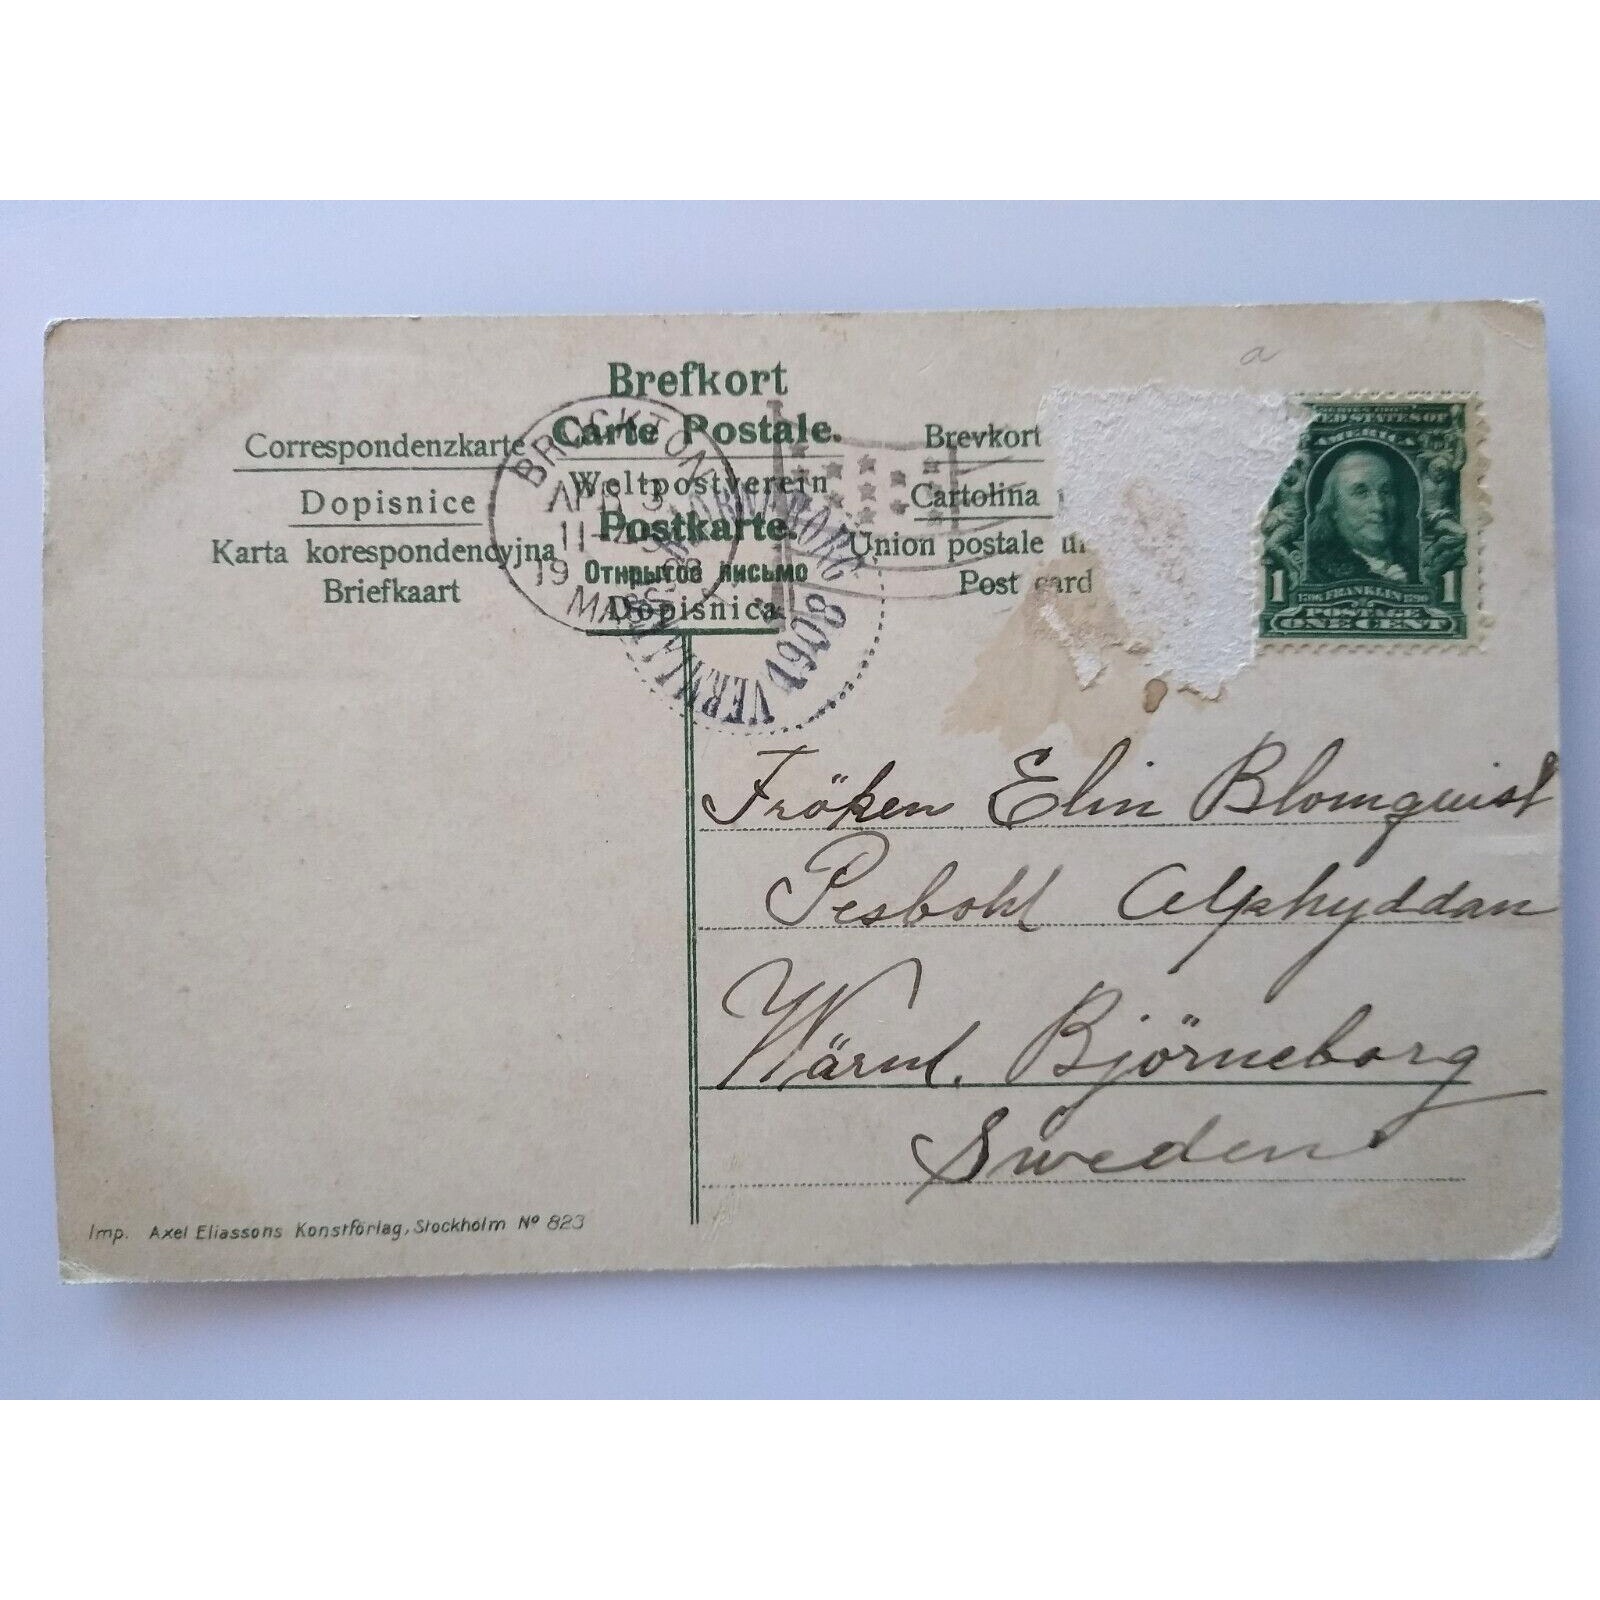 a
Brefkort
Carte Postale.
Correspondenzkarte
Brevkort
Dopisnice
Weltpostverein
Cartolina
Karta korespondencyjna
Postkarte.
Union postale
Briefkaart
Открытое письмо
Post card
Dopisnica
BROCKTON
APR 3
11-
19
MASS.
VERMLANDS BJÖRNEBORG
1908
SERIES 1902
UNITED STATES OF
AMERICA
1 1
1706 FRANKLIN 1790
POSTAGE
ONE CENT
Fröken Elin Blomquist
Pesbohl Alphyddan
Wärml. Björneborg
Sweden
Imp. Axel Eliassons Konstförlag, Stockholm No 823